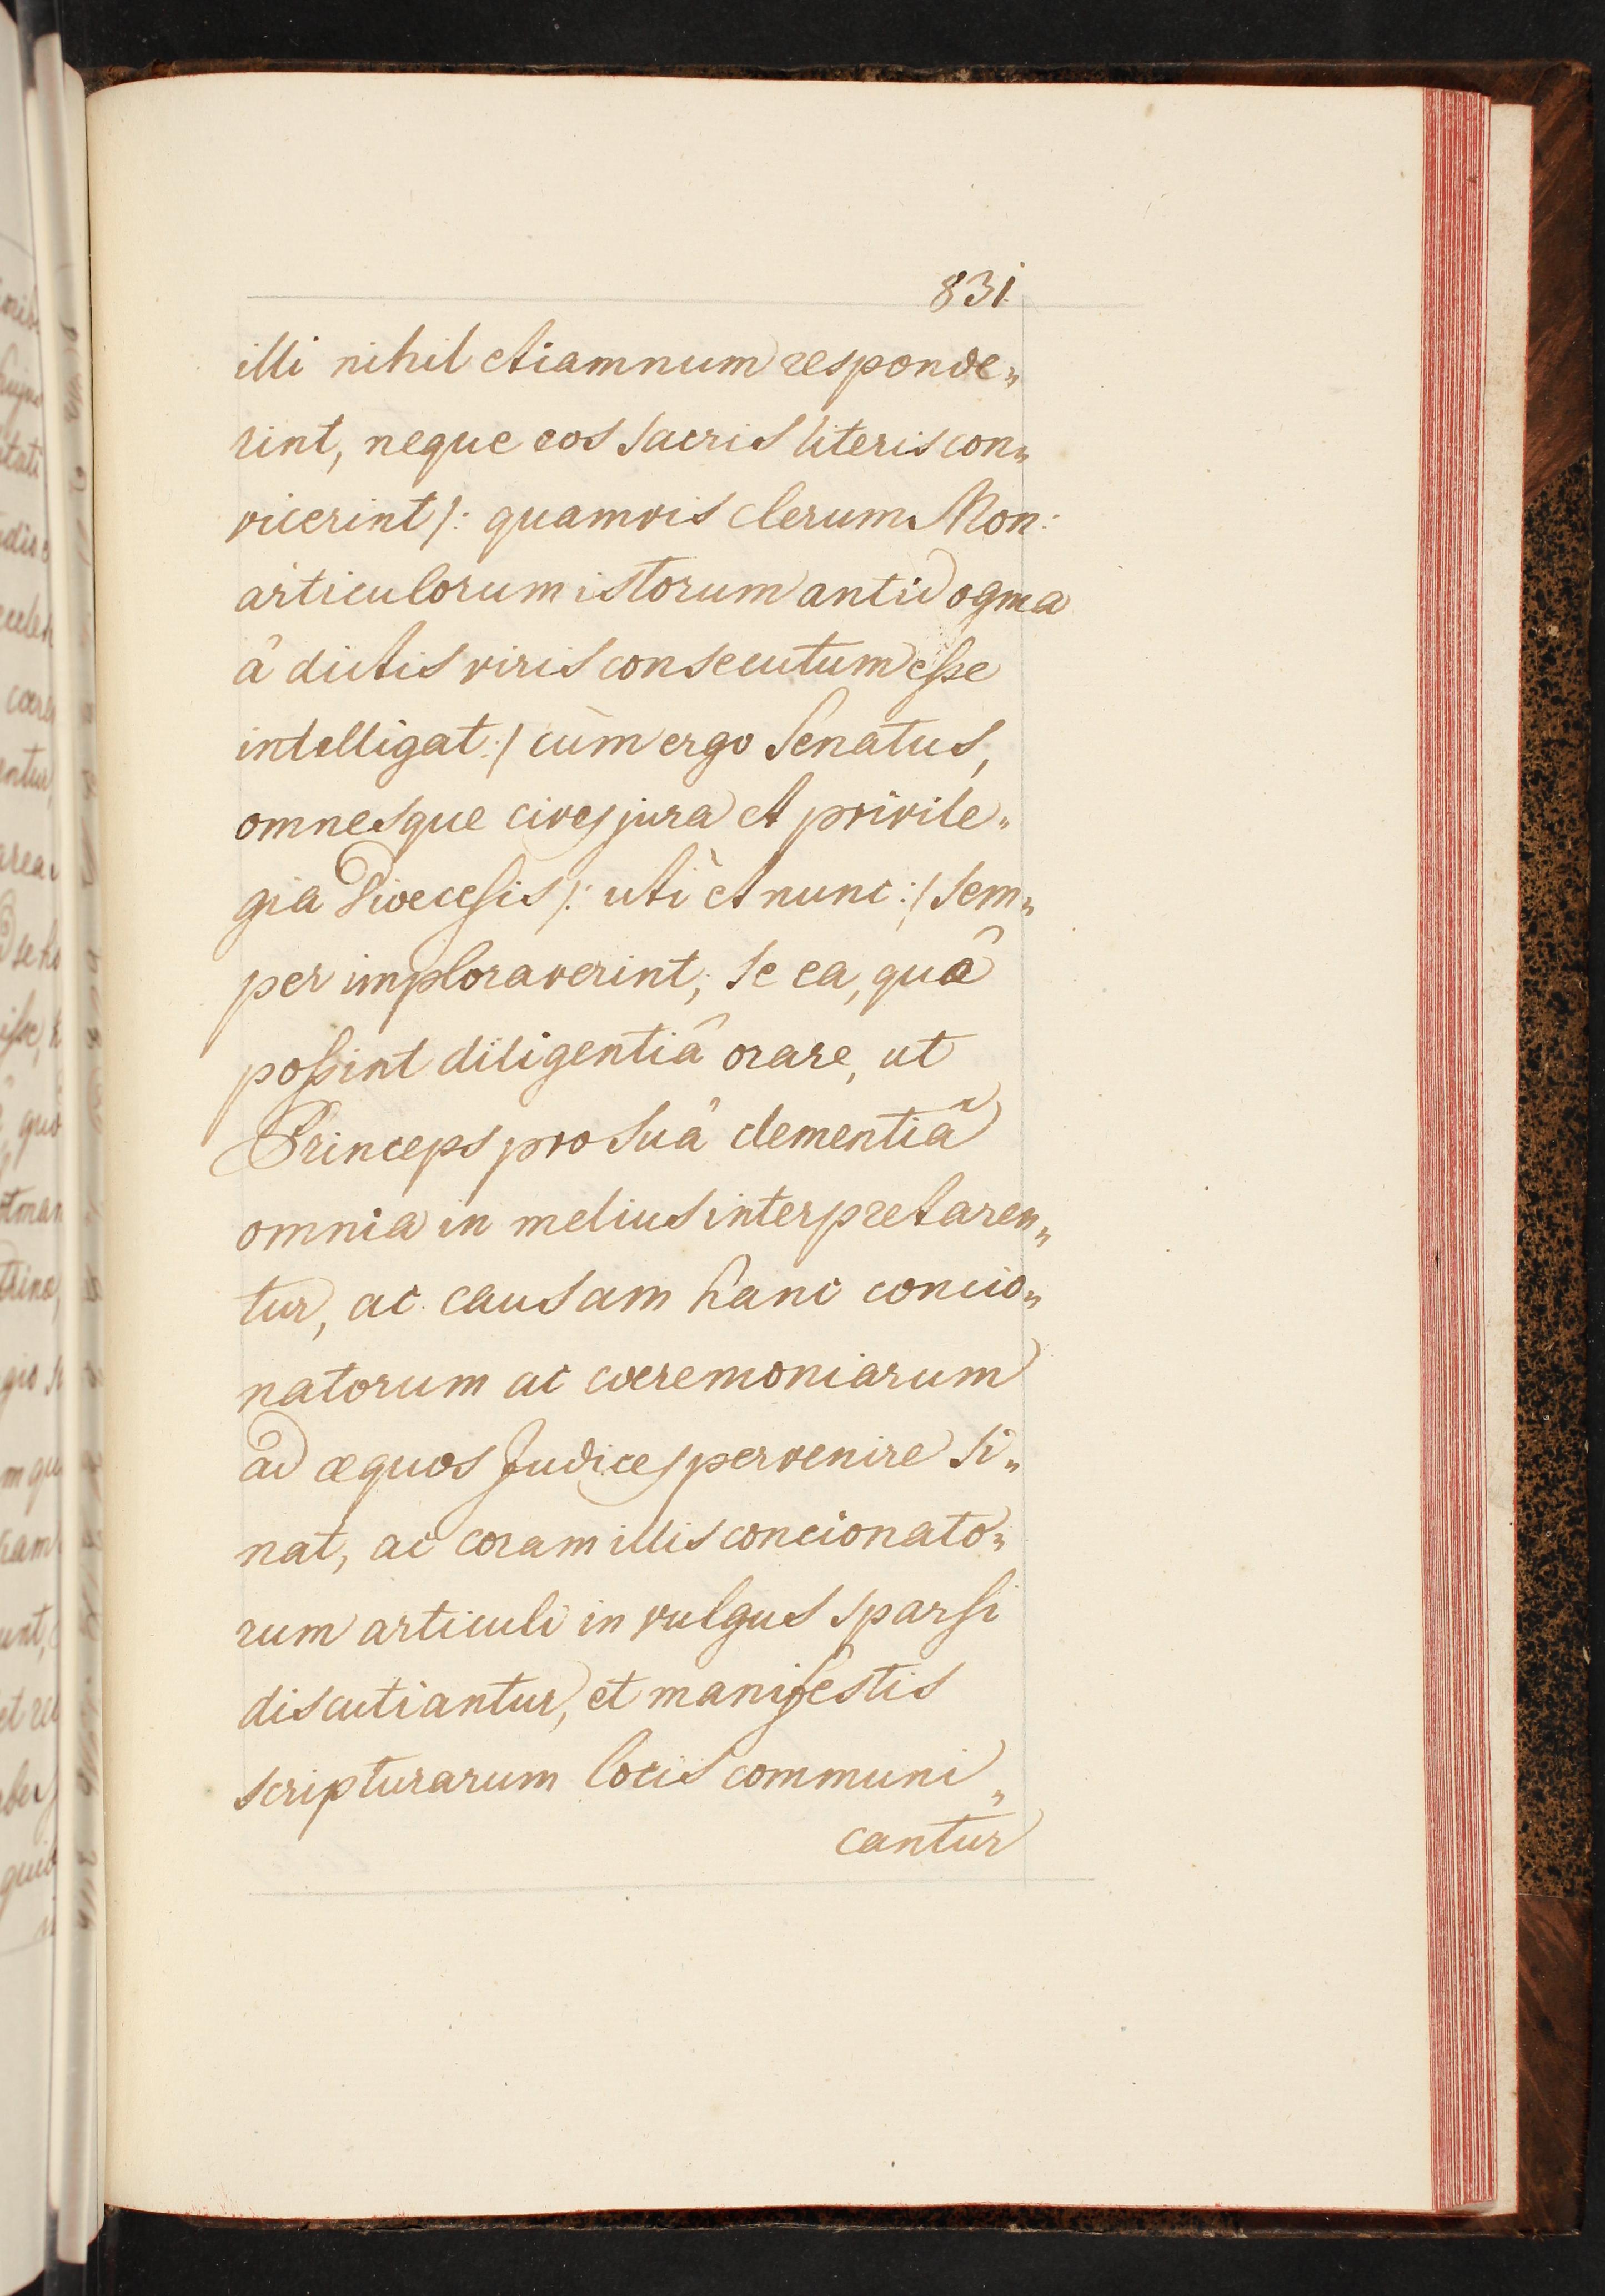 831
illi nihil etiamnum responde„
rint, neque eos sacris literis con„
vicerint /: quamvis clerum Mon:
articulorum istorum antidogma
â dictis viris consecutum esse
intelligat :/ cùm ergo Senatus,
omnesque cives jura et privile„
gia Dioecesis /: uti et nunc :/ sem„
per imploraverint, se ea, quâ
possint diligentiâ orare, ut
Princeps pro suâ clementiâ
omnia in melius interpretaren„
tur, ac causam hanc concio„
natorum ac coeremoniarum
ad aequos Judices pervenire si„
nat, ac coram illis concionato„
rum articuli in vulgus sparsi
discutiantur, et manifestis
scripturarum locis communi„
cantur